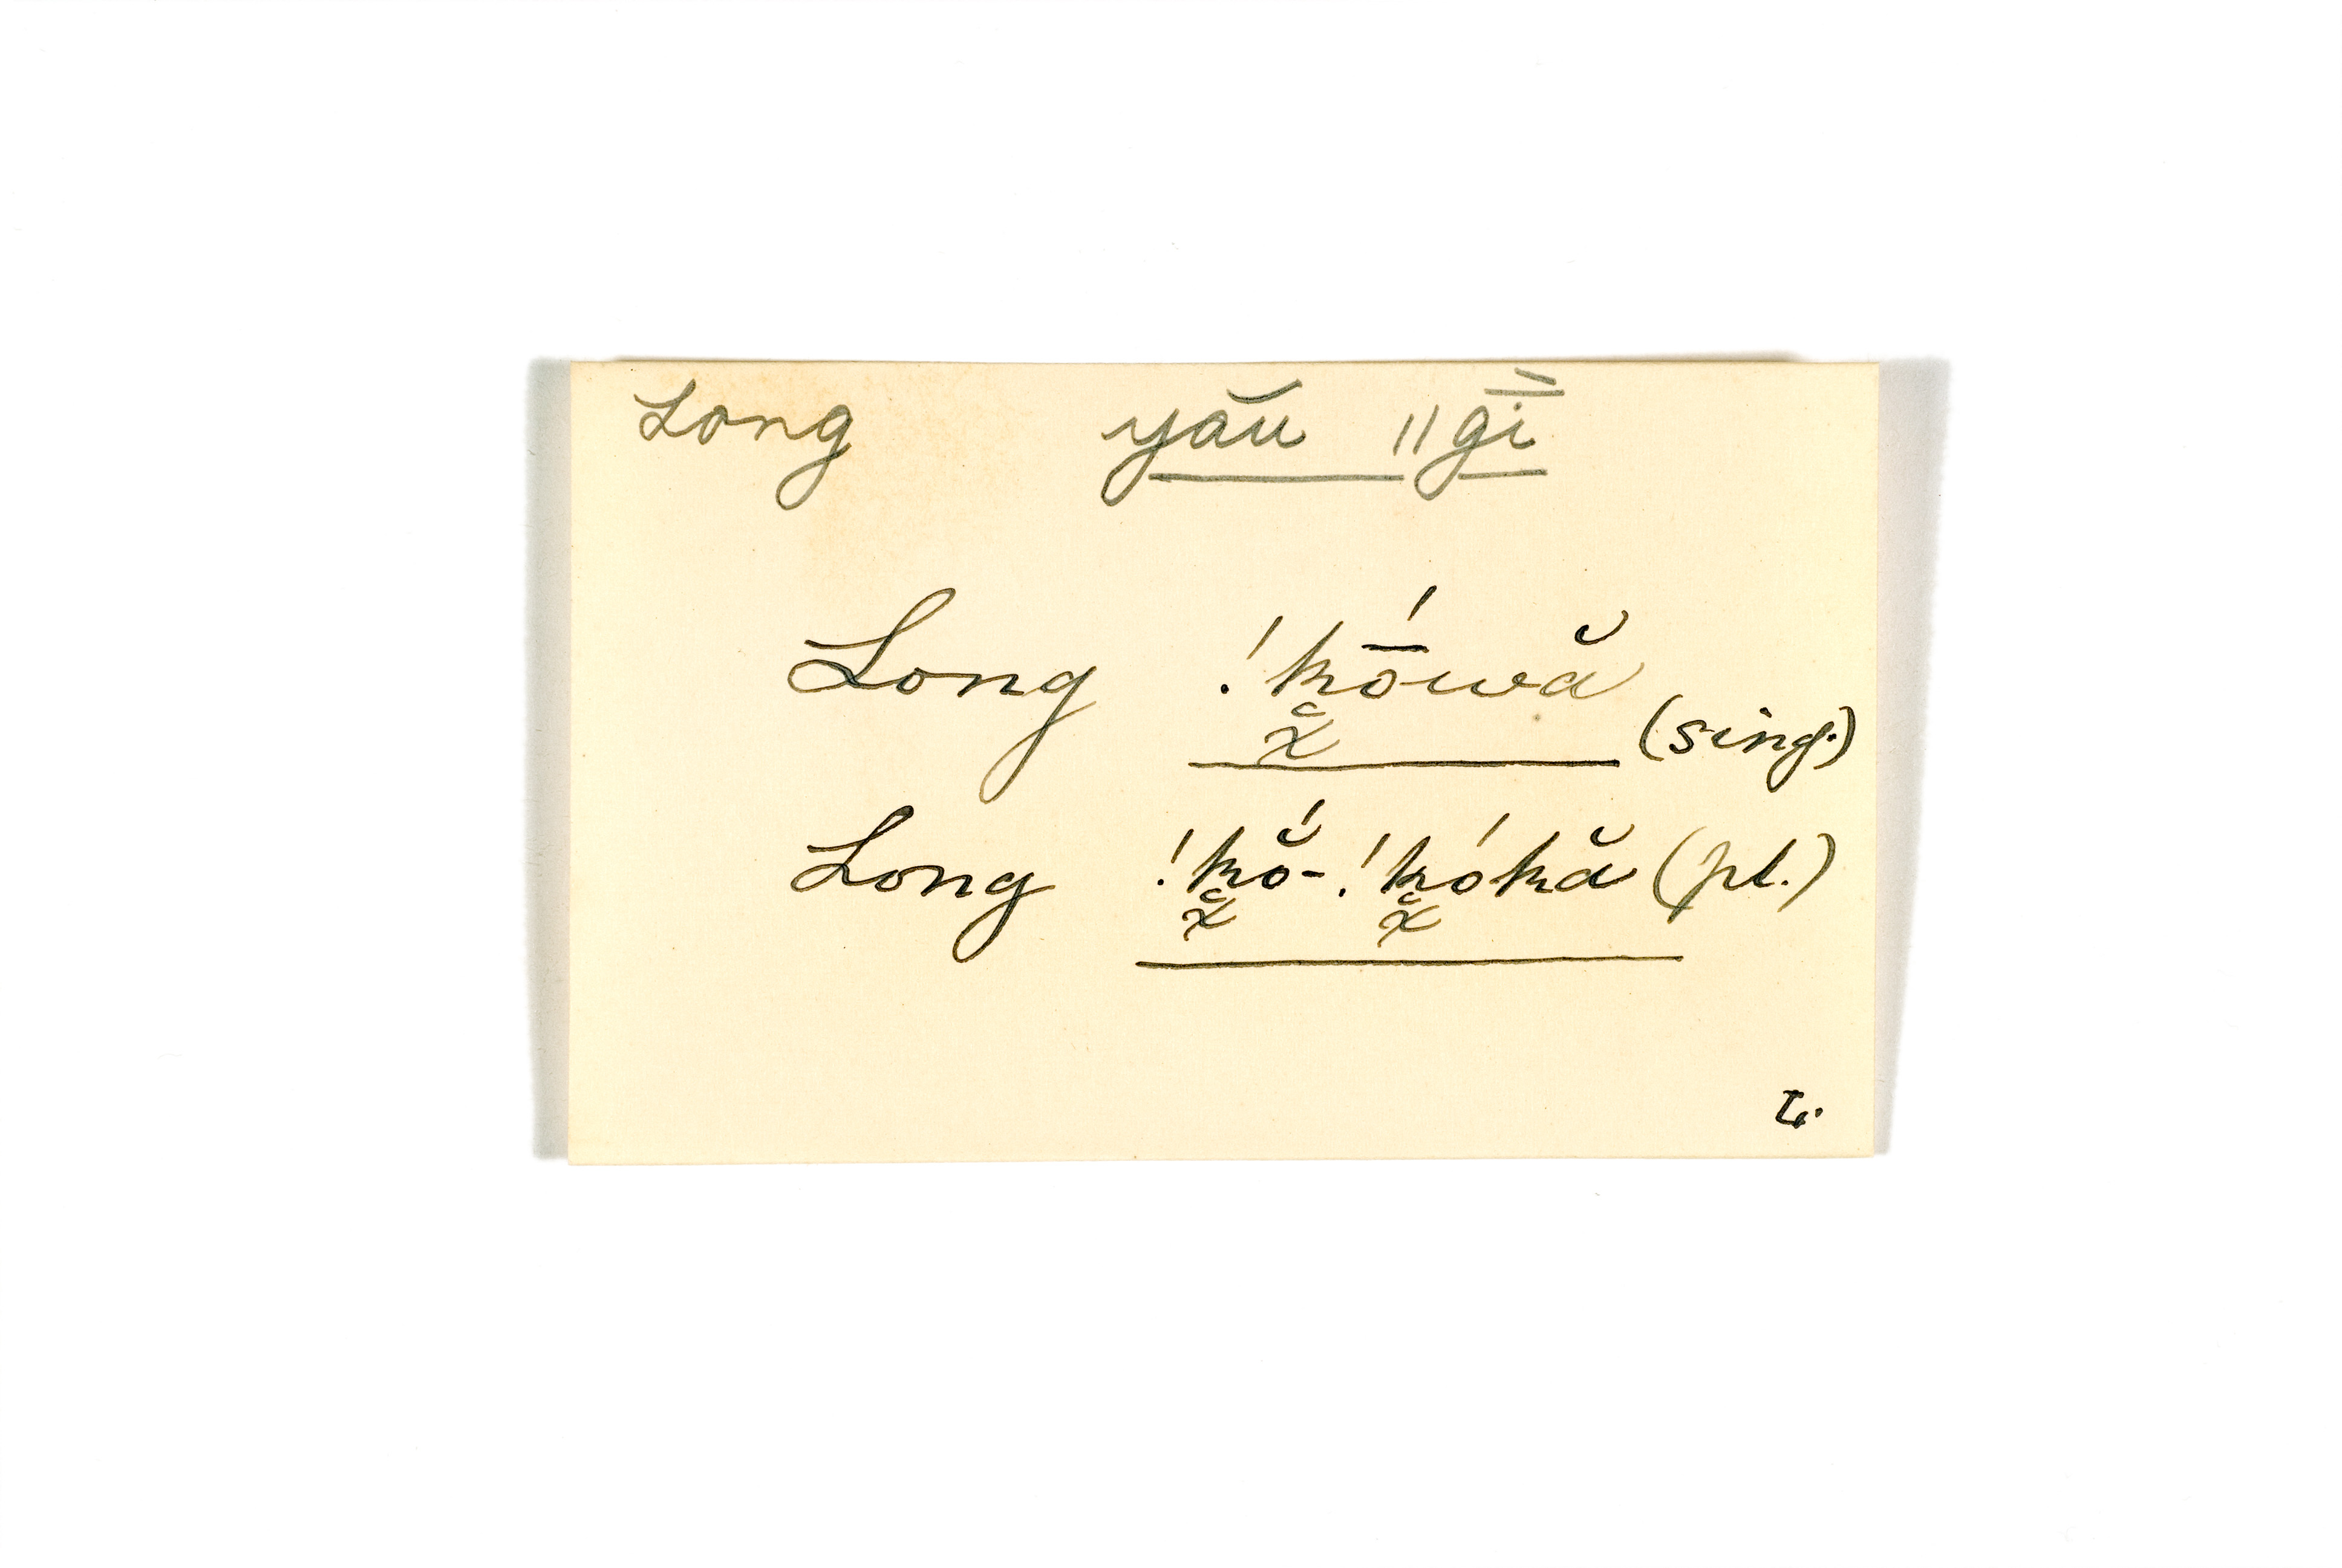 Long yău ǁgī̀
Long !k͓̯ṓwă (sing.)
Long !k͓̯ŏ́-!k͓̯ókă (pl.)
L.